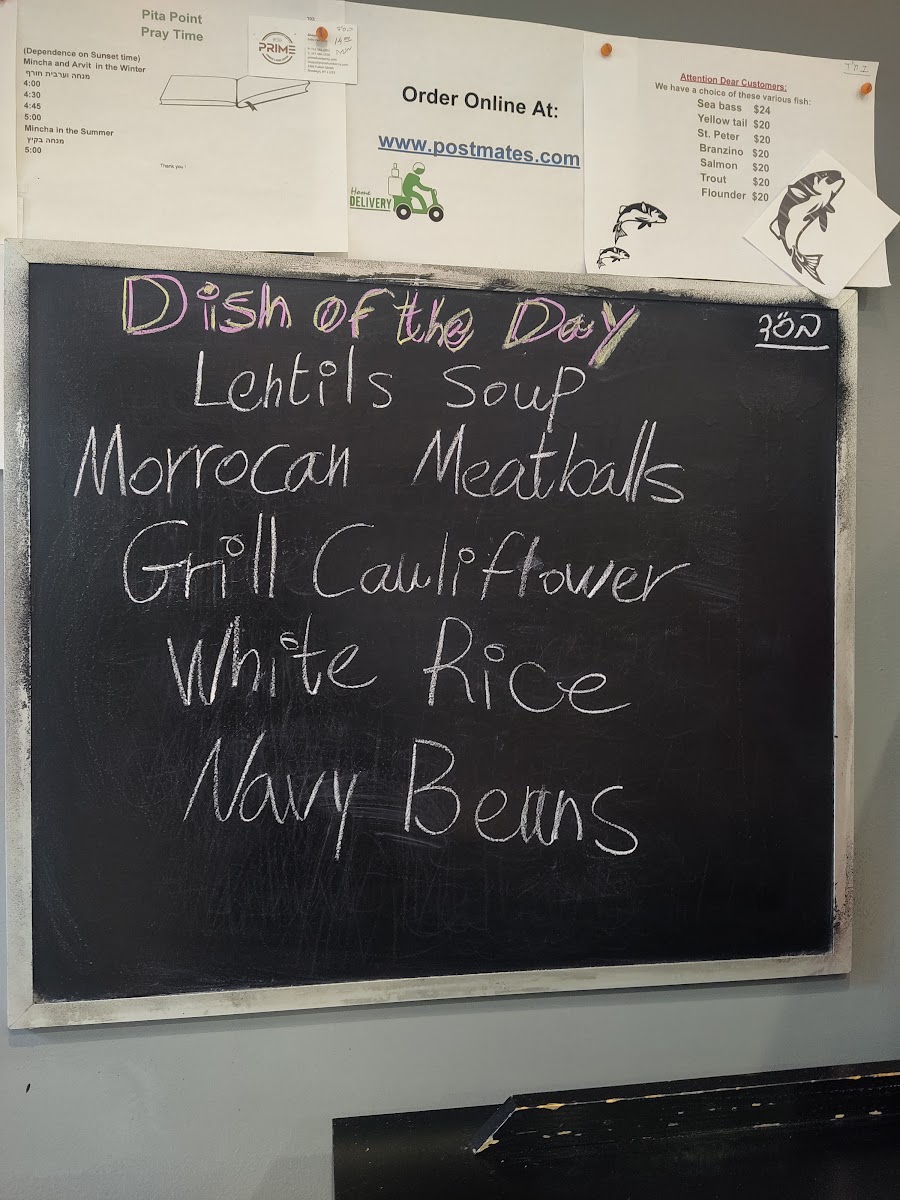 Pita Point
Pray Time
(Dependence on Sunset time)
Mincha and Arvit in the Winter
מנחה וערבית חורף
4:00
4:30
4:45
5:00
Mincha in the Summer
מנחה בקיץ
5:00
Thank you !
PRIME
Order Online At:
www.postmates.com
Home
DELIVERY
Attention Dear Customers:
We have a choice of these various fish:
Sea bass $24
Yellow tail $20
St. Peter $20
Branzino $20
Salmon $20
Trout $20
Flounder $20
Dish of the Day
בס״ד
Lentils Soup
Morrocan Meatballs
Grill Cauliflower
White Rice
Navy Beans